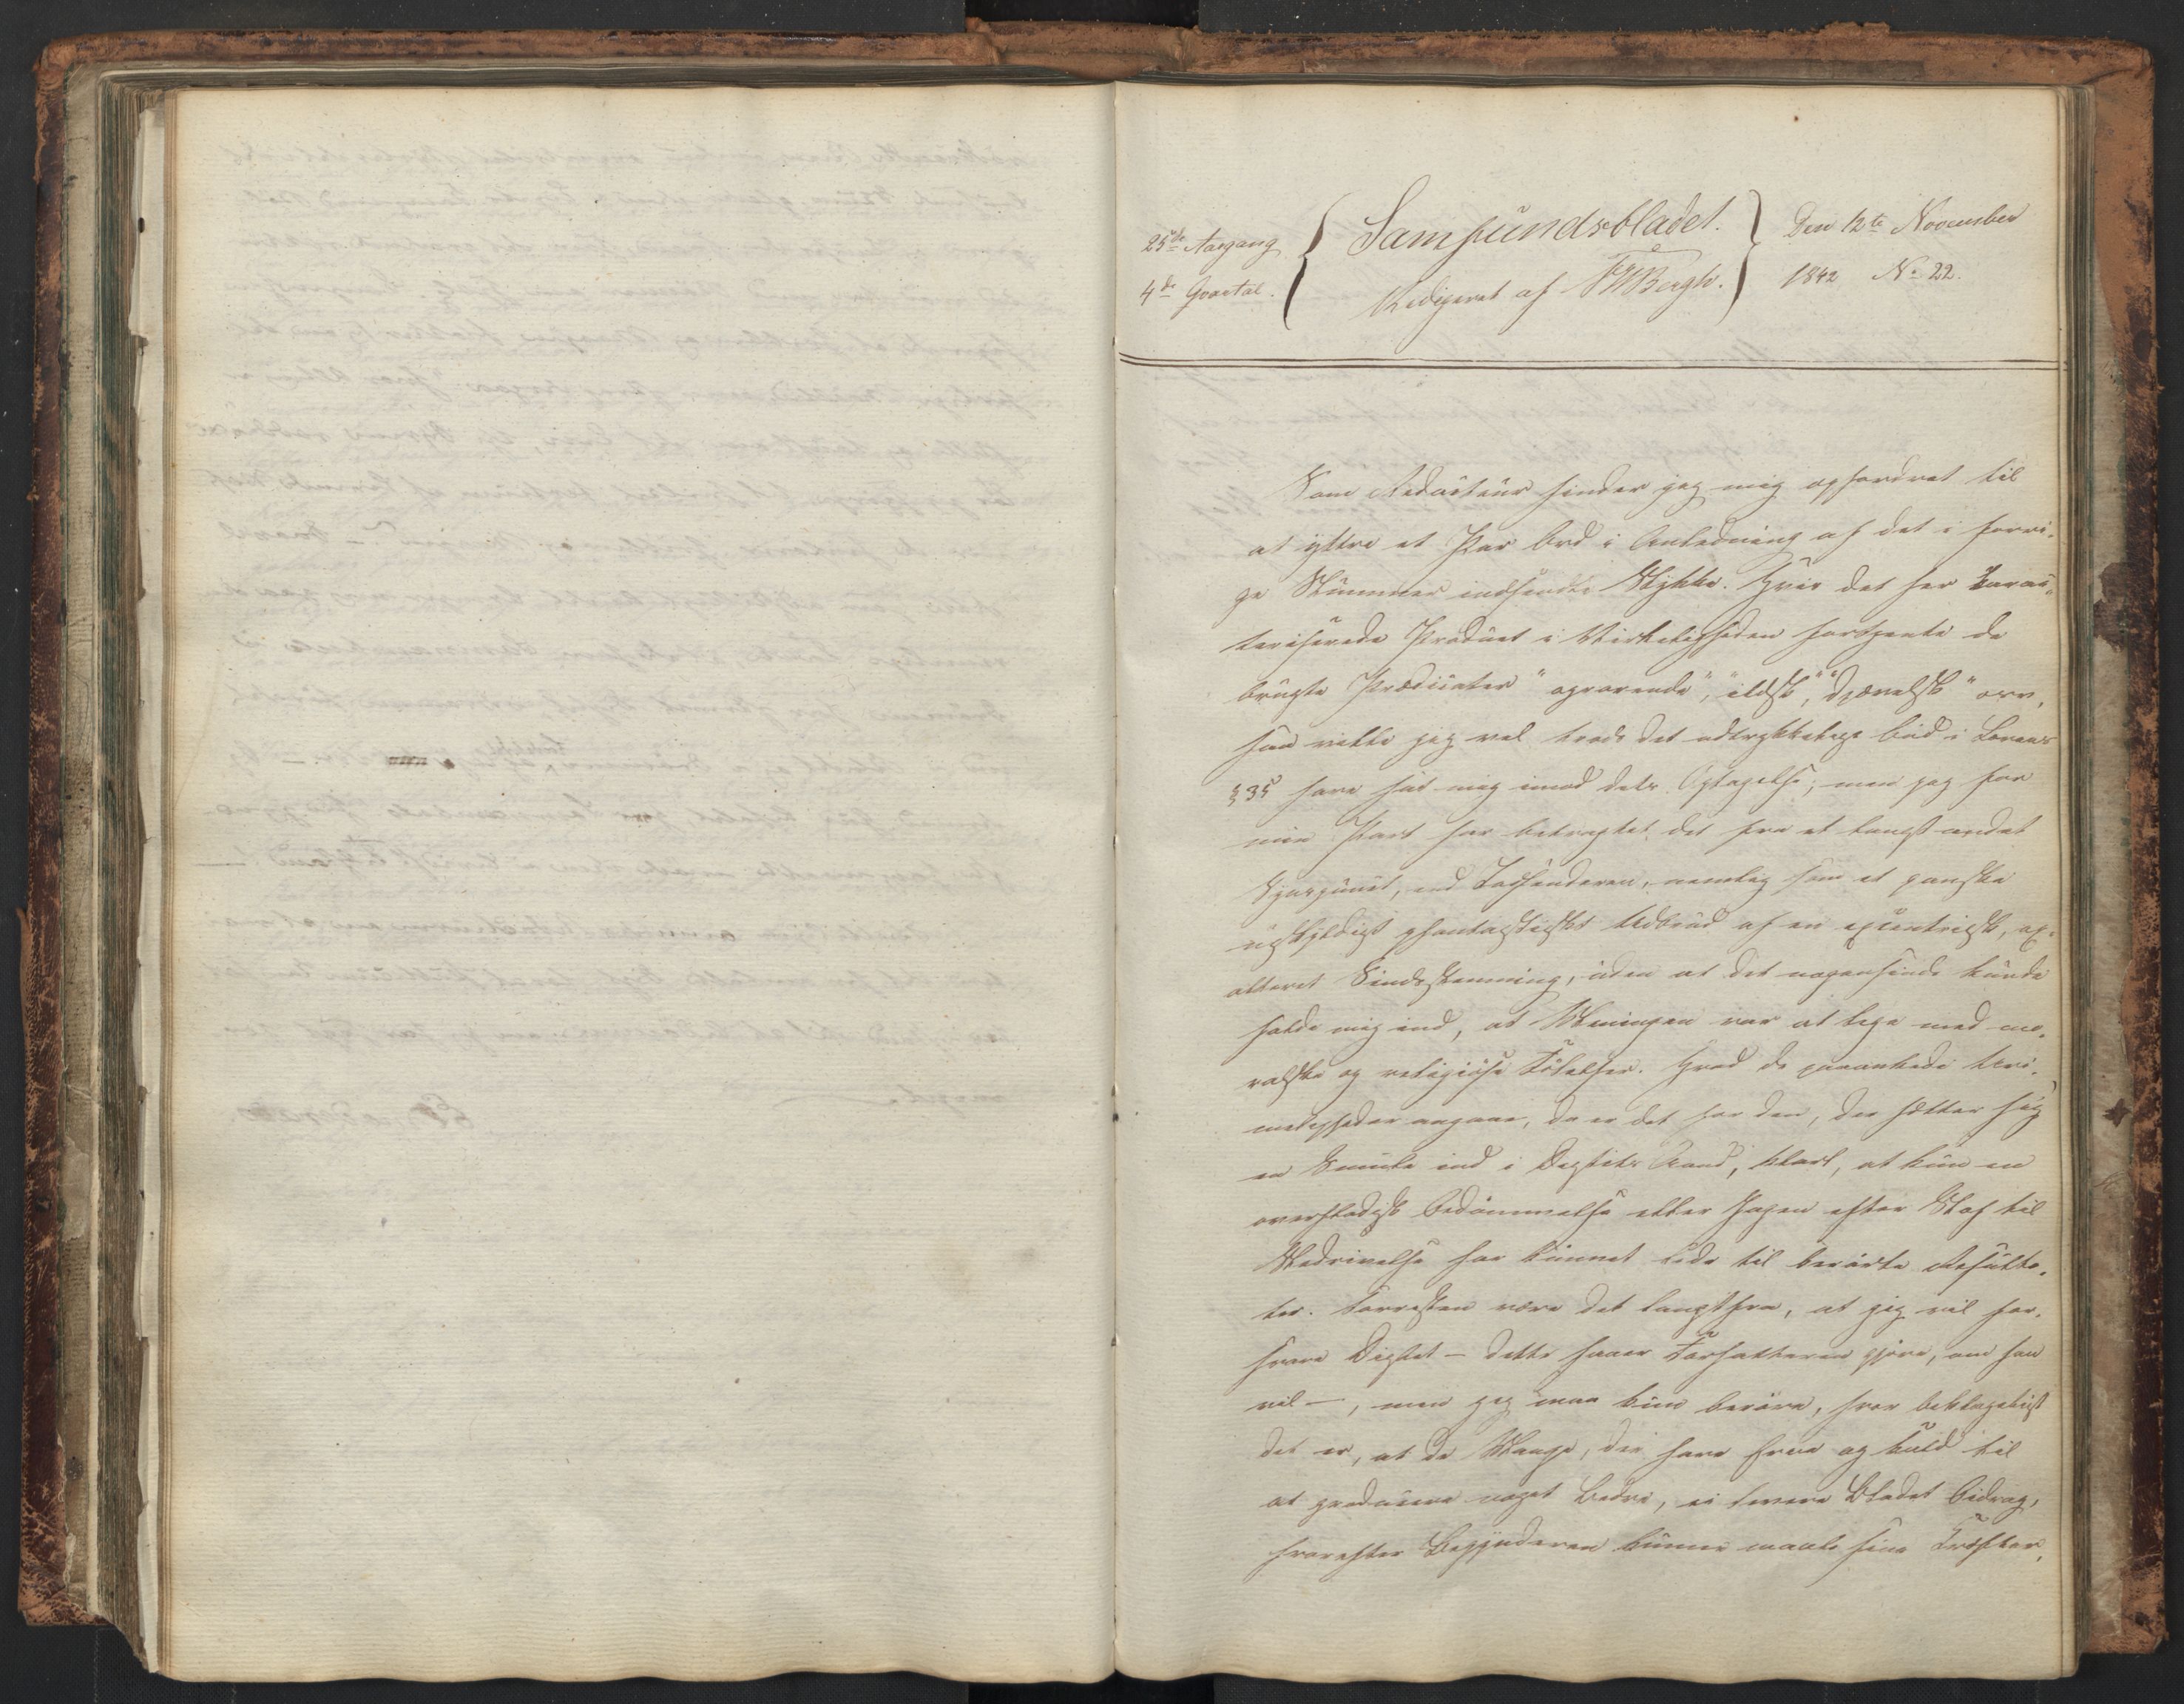 25de Aargang
4de Qvartal.
Samfundsbladet.
Redigeret af F W Bergh.
Den 12te November
1842 No 22.
Som Redacteur finder jeg mig opfordret til
at yttre et Par Ord i Anledning af det i forri-
ge Nummer indsendte Stykke. Hvis det her karac-
teriserede Product i Virkeligheden fortjente de
brugte Prædicater "oprørende", "ildsk", "djævelsk" osv,
saa vilde jeg vel trods det udtrykkelige Bud i Lovens
§35 have sat mig imod dets Optagelse; men jeg for
min Part har betragtet det fra et langt andet
Synspunct, end Indsenderen, nemlig som et ganske
uskyldigt phantastiskt Udbrud af en excentrisk, ex-
alteret Sindsstemning, uden at det nogensinde kunde
falde mig ind, at Meningen var at lege med mo-
ralske og religiøse Følelser. Hvad de paaankede Uri-
meligheder angaae, da er det for den, der sætter sig
en Smule ind i Digtets Aand, klart, at kun en
overfladisk Bedømmelse eller Jagen efter Stof til
Nedrivelse har kunnet lede til berørte Resulta-
ter. Forresten være det langtfra, at jeg vil for-
svare Digtet – dette faaer Forfatteren gjøre, om han
vil –, men jeg maa kun berøre, hvor beklageligt
det er, at de Mange, der have Evne og Kald til
at producere noget Bedre, ei levere Bladet Bidrag,
hvorefter Begynderen kunne maale sine Kræfter,